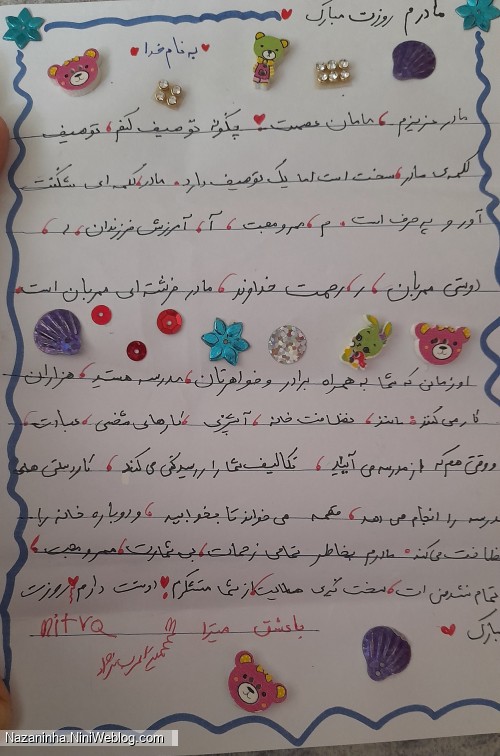 مادرم روزت مبارک
به نام خدا
مادر عزیزم ، مامان عصمت چگونه توصیف کنم ، توصیف
کلمه‌ی مادر سخت است اما یک توصیف دارد. مادر کلمه ای شگفت
آور و پر حرف است. م ، مهر و محبت ، آ ، آمرزش فرزندان ، د ،
دوستی مهربان ، ر ، رحمت خداوند ، مادر فرشته ای مهربان است.
او زمان که شما به همراه برادر و خواهرتان مدرسه هستید هزاران
کار می کند: مانند نظافت خانه ، آشپزی ، کارهای شخصی ، عبادت ،
وقتی هم که از مدرسه می آیید ، تکالیف شما را رسیدگی می کند ، کاردستی های
مدرسه را انجام می دهد ، قصه می خواند تا بخوابید ، و دوباره خانه را
نظافت می کند. مادرم بخاطر تمامی زحمات بی شمارت ، مهر و محبت
تمام نشدنی ات ، سخت گیری هایت از شما متشکرم! دوستت دارم! روزت
مبارک
با عشق میترا
mitra
Nazaninha.NiniWeblog.com